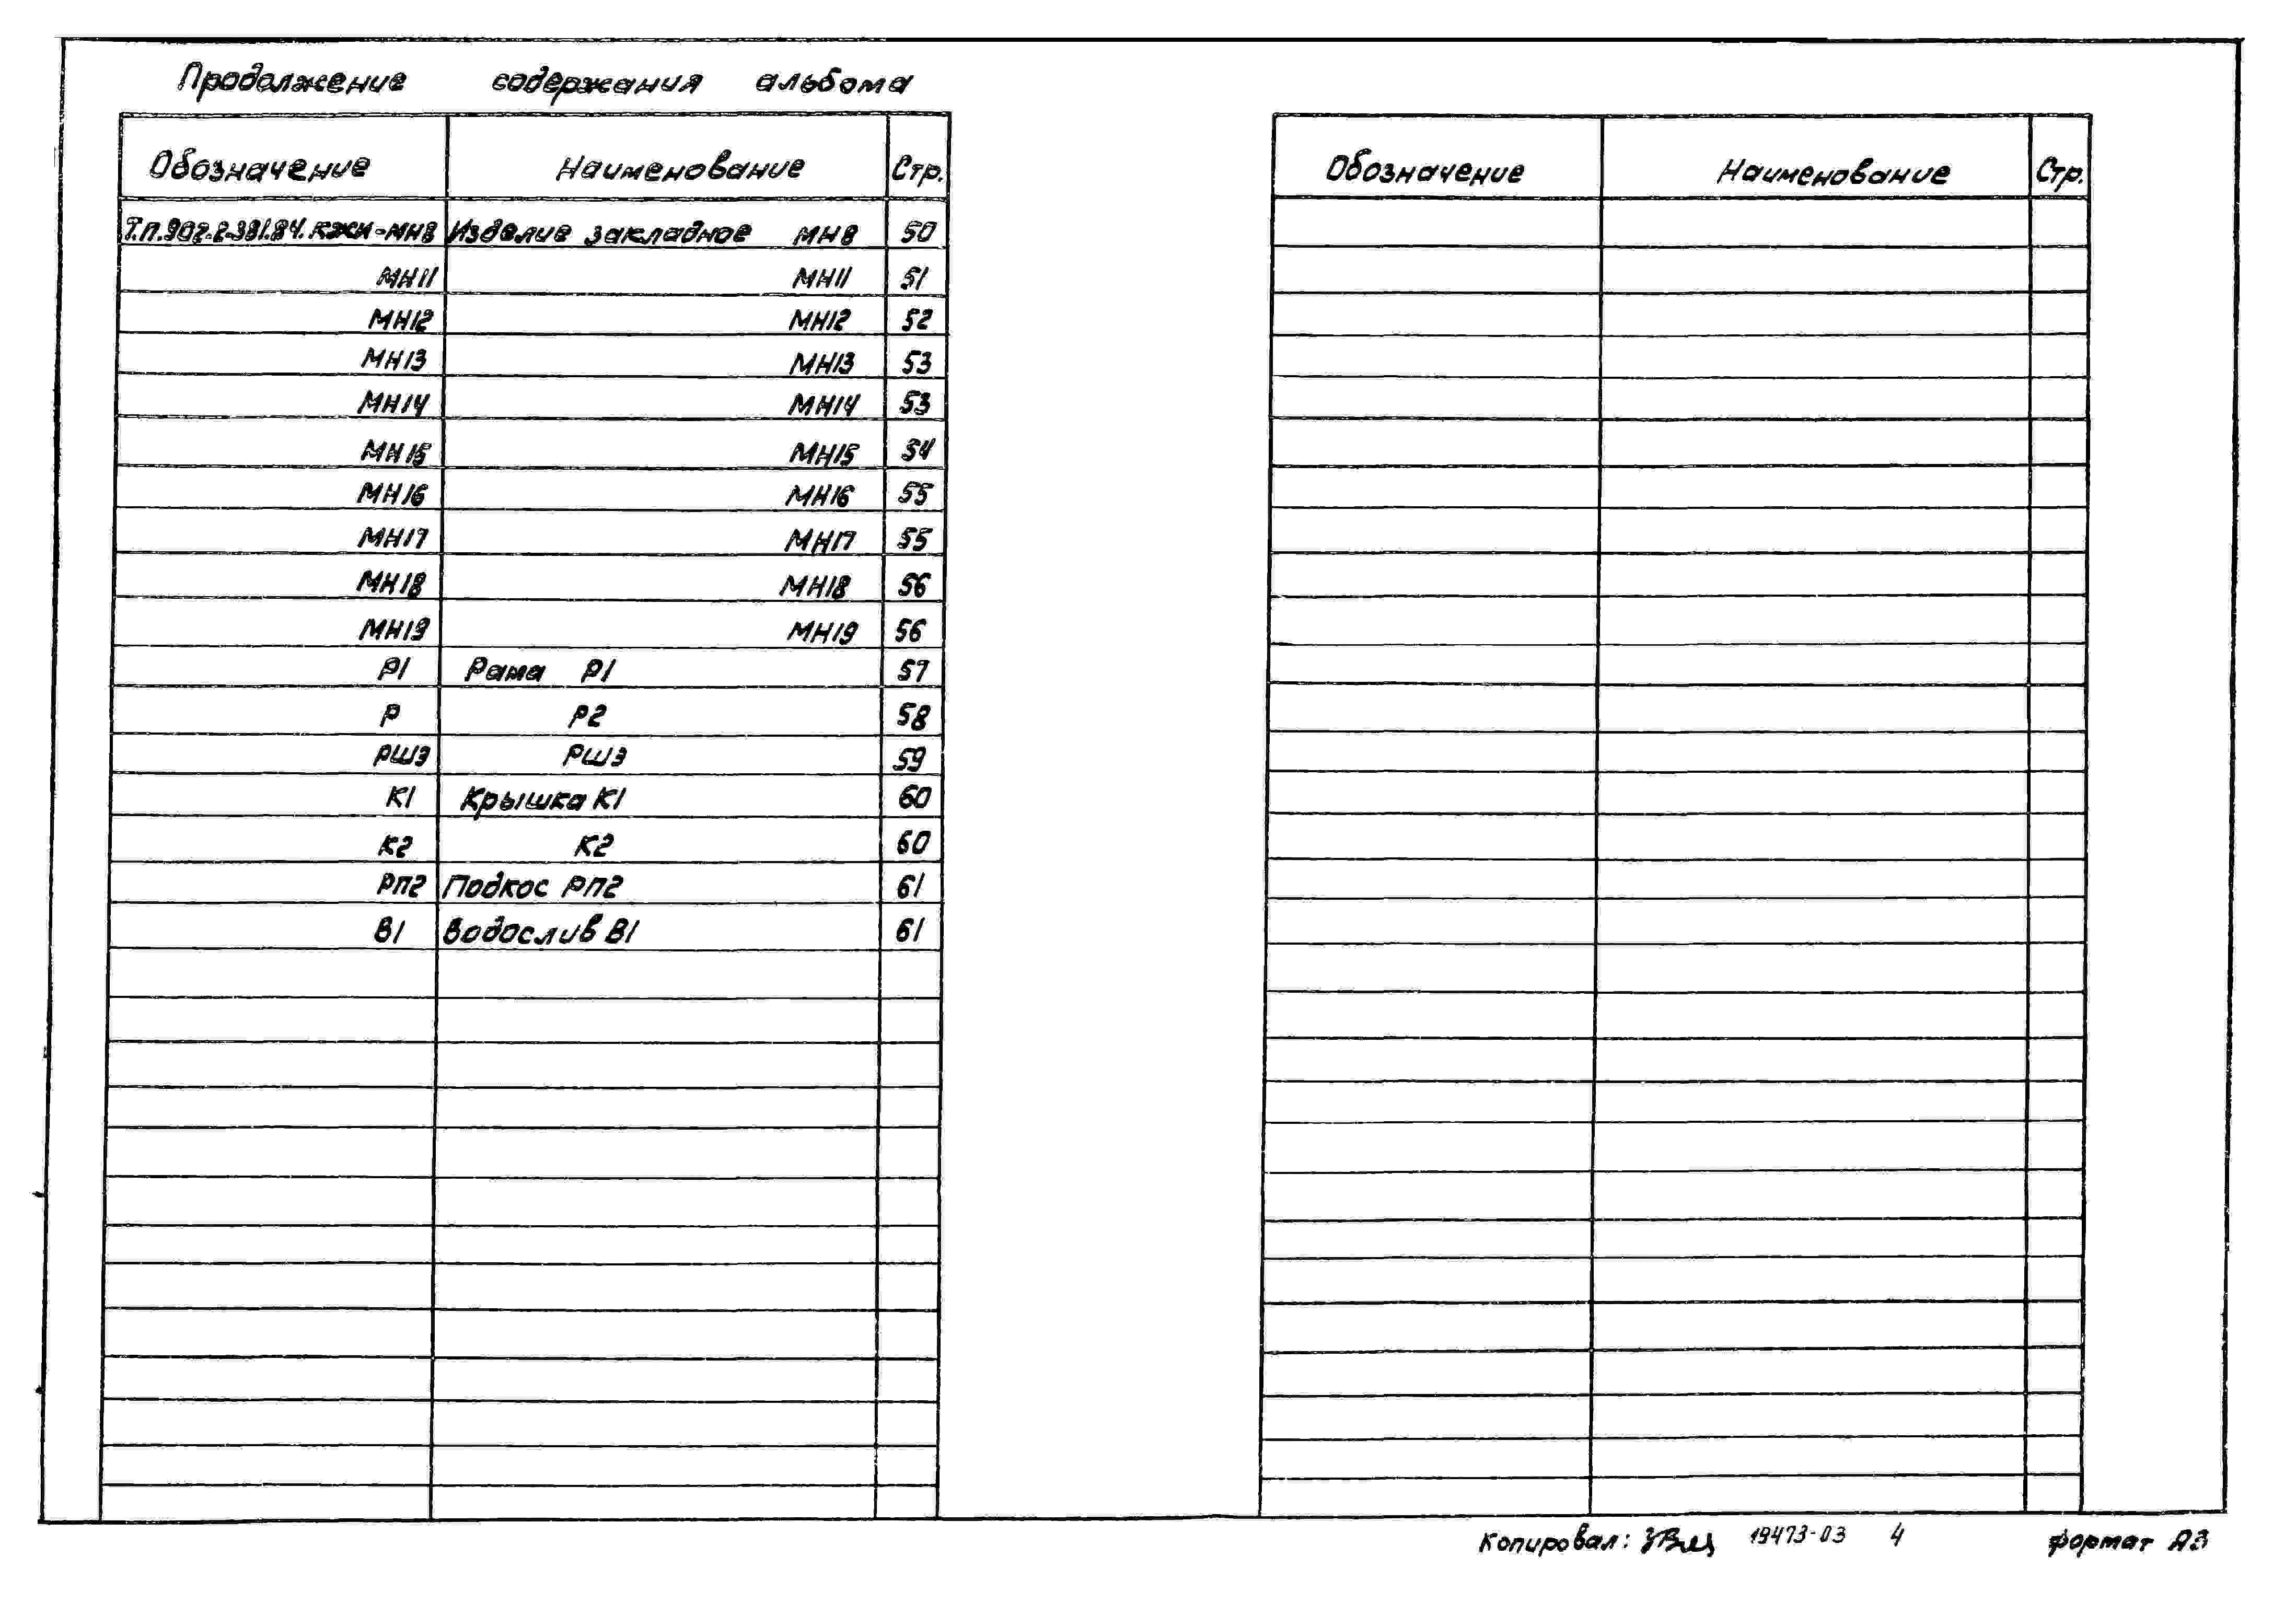 Продолжение содержания альбома
Обозначение Наименование Стр.
Т.п.902-2-381.84.КЖИ-МН8 Изделие закладное МН8 50
МН11 МН11 51
МН12 МН12 52
МН13 МН13 53
МН14 МН14 53
МН15 МН15 54
МН16 МН16 55
МН17 МН17 55
МН18 МН18 56
МН19 МН19 56
Р1 Рама Р1 57
Р Р2 58
РШ3 РШ3 59
К1 Крышка К1 60
К2 К2 60
РП2 Подкос РП2 61
В1 Водослив В1 61
Обозначение Наименование Стр.
Копировал: 19473-03 4 формат А3